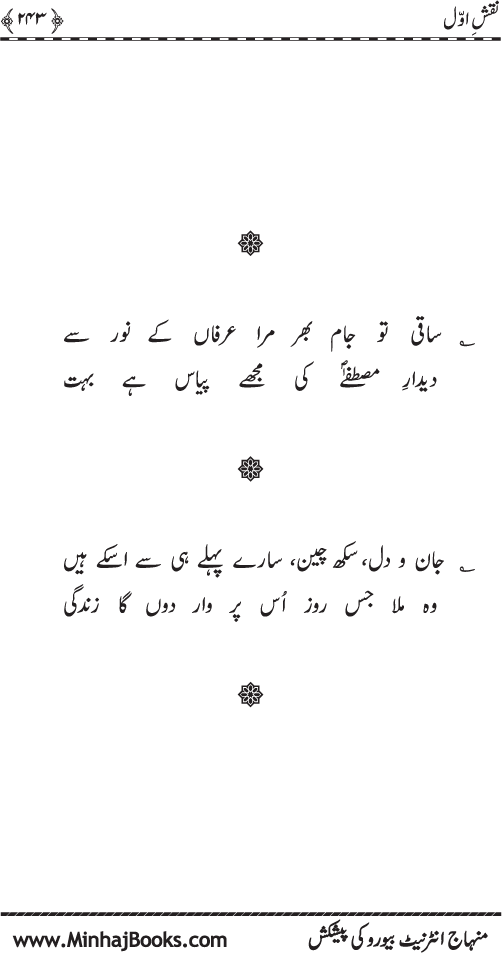 نقشِ اوّل ﴿۲۴۳﴾
ساقی تو جام بھر مرا عرفاں کے نور سے
دیدارِ مصطفےٰؐ کی مجھے پیاس ہے بہت
جان و دل، سکھ چین، سارے پہلے ہی سے اسکے ہیں
وہ ملا جس روز اُس پر وار دوں گا زندگی
منہاج انٹرنیٹ بیورو کی پیشکش www.MinhajBooks.com